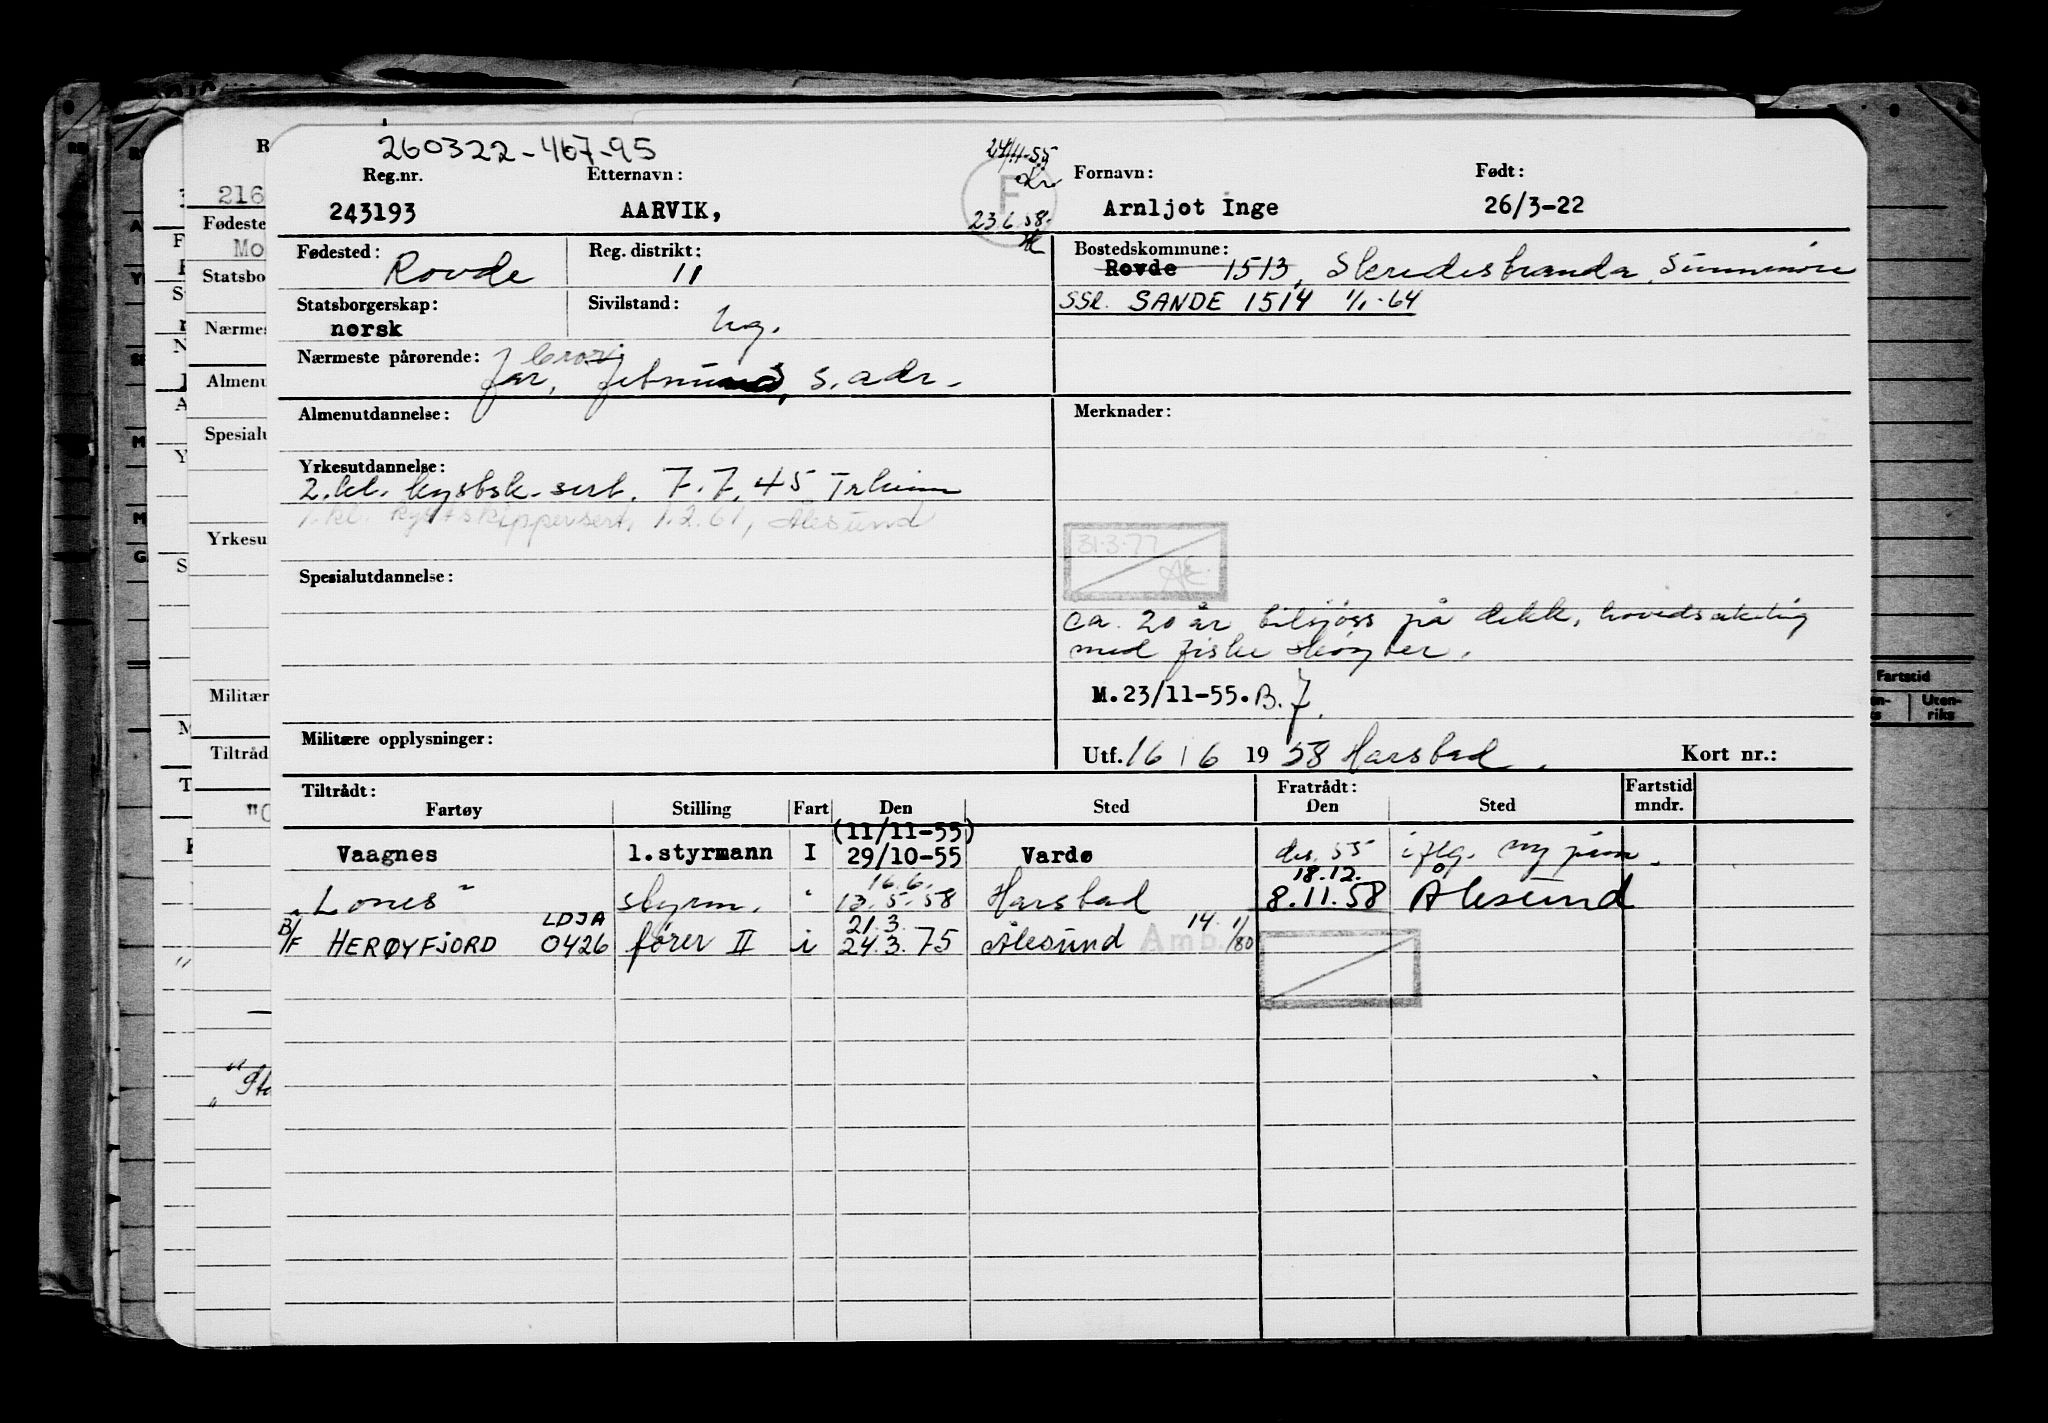 260322-467-95
24/11-55
Reg.nr. Etternavn: Fornavn: Født:
243193 AARVIK, F Arnljot Inge 26/3-22
23.6.58.
Fødested: Rovde Reg. distrikt: 11 Bostedskommune: Rovde 1513,
Statsborgerskap: norsk Sivilstand: ug. SSR. SANDE 1514 1/1-64
Nærmeste pårørende: far, s. adr.
Almenutdannelse: Merknader:
Yrkesutdannelse:
2. kl. kystsk. sert. 7.7.45 Trheim
1. kl. kystskippersert. 1.2.61, Ålesund
31.3.77
AE.
Spesialutdannelse:
ca. 20 år tilsjøss på dekk, hovedsakelig
med fiske skøyter.
M.23/11-55. B. 7.
Militære opplysninger: Utf. 16/6 1958 Harstad. Kort nr.:
Tiltrådt: Fratrådt: Fartstid
Fartøy Stilling Fart Den Sted Den Sted mndr.
(11/11-55)
Vaagnes 1.styrmann I 29/10-55 Vardø des. 55 iflg. ny
16.6. 18.12.
"Lones" styrm. " 13.5.58 Harstad 8.11.58 Ålesund
B/F LDJA 21.3. 14. 1/80
HERØYFJORD 0426 fører II i 24.3.75 Ålesund Amb.
R
216
Fødeste
Mo
Statsbo
Nærmes
Almenu
Spesialu
Yrkesu
Militær
Tiltråd
Fartstid
Uten-
riks